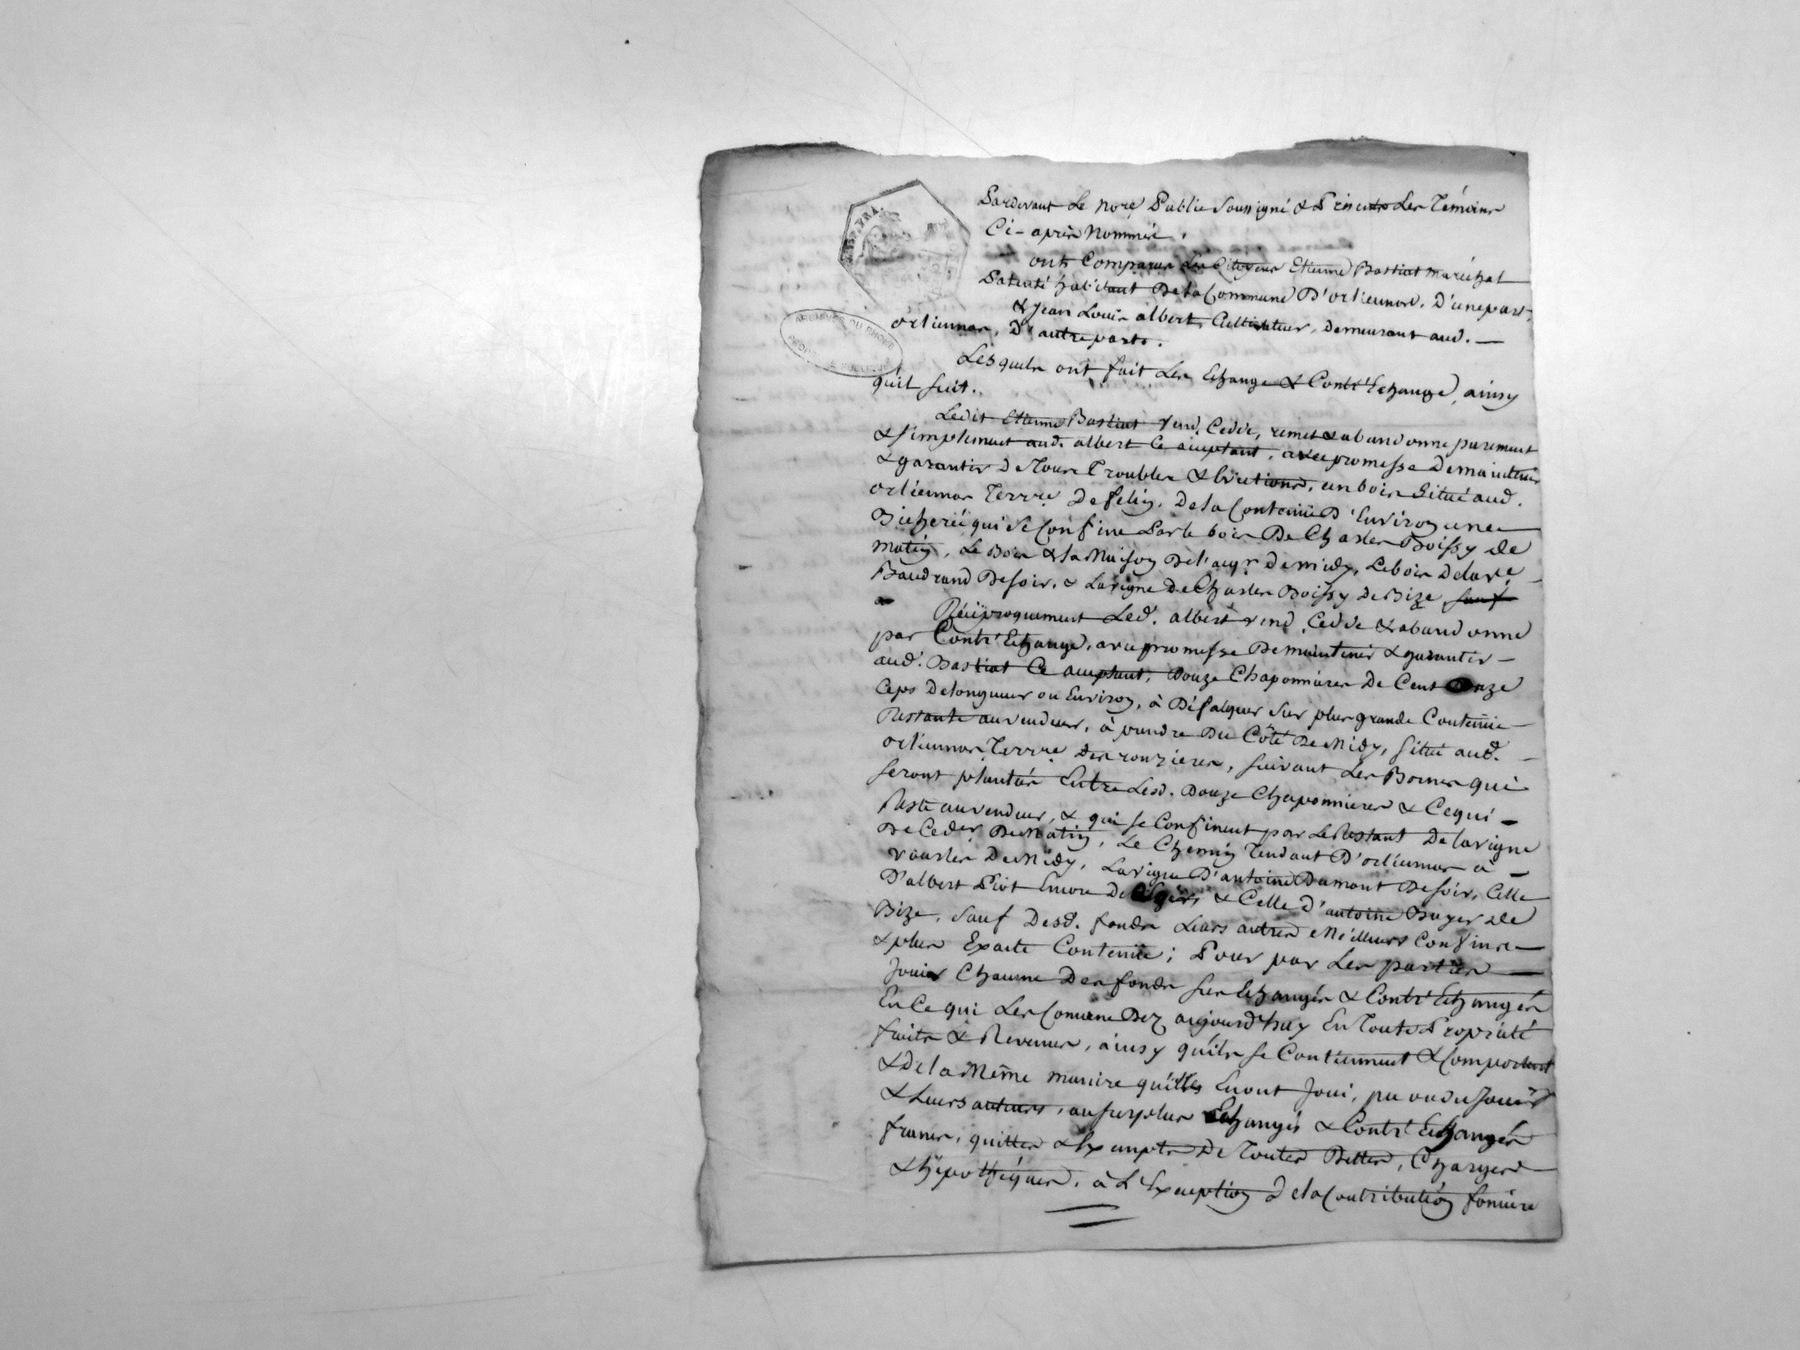 Pardevant Le Nore Public Soussigné & Présents Les Témoins
Ci-après Nommés.
onts Comparus Les Citoyens Etienne Bastiat maréchal
Patenté habitant De la Commune D'orliennas, D'une part,
& Jean Louis albert, Cultivateur, Demeurant aud.
orliennas, D'autre parts.
Lesquels ont fait Les Echange & Contr'Echange, ainsy
quil suit.
Ledit Etienne Bastiat Vend, Cedde, remet & abandonne purement
& simplement aud. albert Ce acceptant, avec promesse De maintenir
& garantir De Tours Troubles & Evictions, un bois Situé aud.
orliennas Terre De felin, De la Contenue D'Environ une
Bicherée qui Se Confine Par le bois De Charles Boissy de
matin, Le Bois & la Maison De l'acqr. de midy, Le bois De la Ve
Baudrand De soir, & La vigne De Charles Boissy De Bize, sauf
Réciproquement Led. albert vend, Cedde & abandonne
par Contr'Echange, avec promesse De maintenir & garantir
aud. Bastiat Ce acceptant, Douze Chaponnières De Cent onze
Ceps De longueur ou Environ, à Défalquer Sur plus grande Contenue
Restante au vendeur, à prendre Du Côté De Midy, situé aud.
orliennas Terre des ronzieres, suivant Les Bornes qui
seront plantées Entre Lesd. Douze Chaponnieres & Ce qui
Reste au vendeur, & qui se Confinent par Le Restant De la vigne
De Ceder De Matin, Le Chemin Tendant D'orliennas à
vourles De Midy, La vigne D'antoine Dumont De soir, Celle
D'albert Piot Encore De & Celle d'antoine Buyer de
Bize, Sauf Desd. fonds Leurs autres Meilleurs Confins
& plus Exacte Contenue; Pour par Les parties
Jouir Chacune Des fonds Sus Echangés & Contr'Echangés
En Ce qui Les Concerne Dez aujourd'huy En Toute Propriété
fruits & Revenus, ainsy qu'ils se Contiennent & Comportent
& De la Même maniere qu'ils En ont Joui, pu ou du Jouir
& Leurs auteurs, au surplus Echangés & Contr'Echangés
francs, quittes & Exempts De Toutes Dettes, Charges
& hypothéques, à L'Exception de la Contribution fonciere